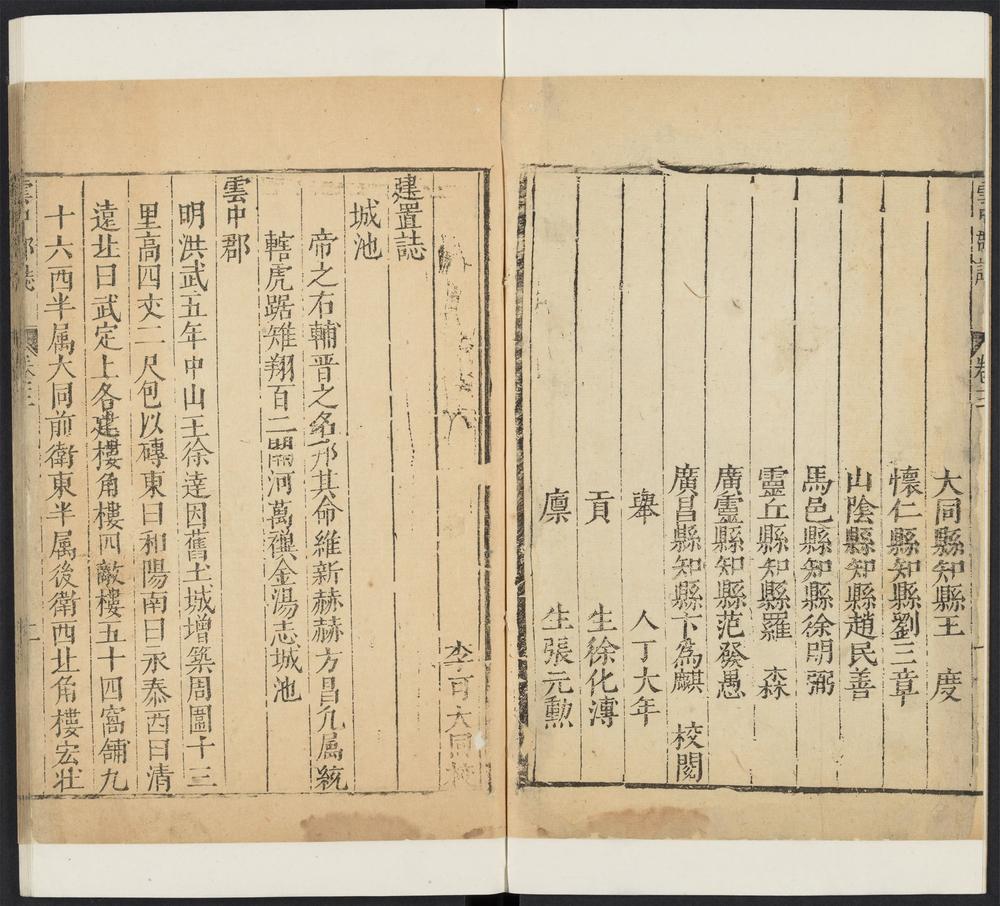 雲中郡誌
卷三
大同縣知縣王 度
懷仁縣知縣劉三章
山陰縣知縣趙民善
馬邑縣知縣徐明弼
靈丘縣知縣羅 森
廣靈縣知縣范發愚
廣昌縣知縣卞為麒 校閱
舉 人丁大年
貢 生徐化溥
廩 生張元勲
李可大同校
建置誌
城池
帝之右輔晋之名邦其命維新赫赫方昌九属統
轄虎踞雉翔百二關河萬禩金湯志城池
雲中郡
明洪武五年中山王徐達因舊土城增築周圍十三
里高四丈二尺包以磚東曰和陽南曰永泰西曰清
遠北曰武定上各建樓角樓四敵樓五十四窩舖九
十六西半属大同前衛東半属後衛西北角樓宏壯
雲中郡誌
卷三
二